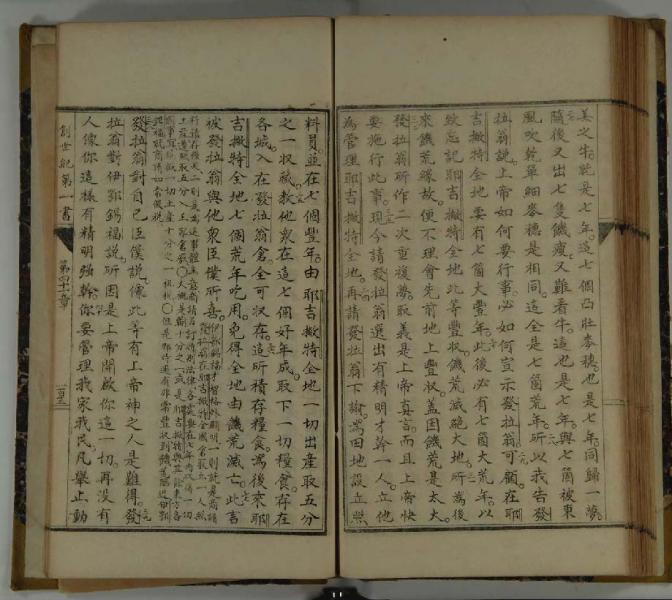 美之牛就是七年這七個西壯麥穗也是七年同歸一夢
隨後又出七隻饑瘦又難看牛這也是七年與七個被東
風吹乾單細麥穗是相同這全是七箇荒年所以我告發
拉翁說上帝如何要行事必如何宣示發拉翁可顧在耶
吉撇特全地要有七箇大豐年此後必有七箇大荒年以
致忘記耶吉撇特全地此等豐收饑荒滅絶大地所為後
來饑荒緣故便不理會先前地上豐收蓋因饑荒是太大
發拉翁所作二次重複夢取義是上帝真言而且上帝快
要施行此事現今請發拉翁選出有精明才幹一人立他
為管理耶吉撇特全地再請發拉翁下諭滿田地設立照
料員並在七個豐年由耶吉撇特全地一切出產取五分
之一收藏教他衆在這七個好年成取下一切糧食存在
各城入在發拉翁倉全可收存這所積存糧食為後來耶
吉撇特全地七個荒年吃用免得全地由饑荒滅亡此言
被發拉翁與他衆臣僕所喜
發拉翁對自己臣僕說像此等有上帝神之人是難得發
拉翁對伊鄂錫福說所因是上帝開啟你這一切再沒有
人像你這樣有精明強幹你要管理我家我民凡舉止動
創世紀第一書
第四十一章